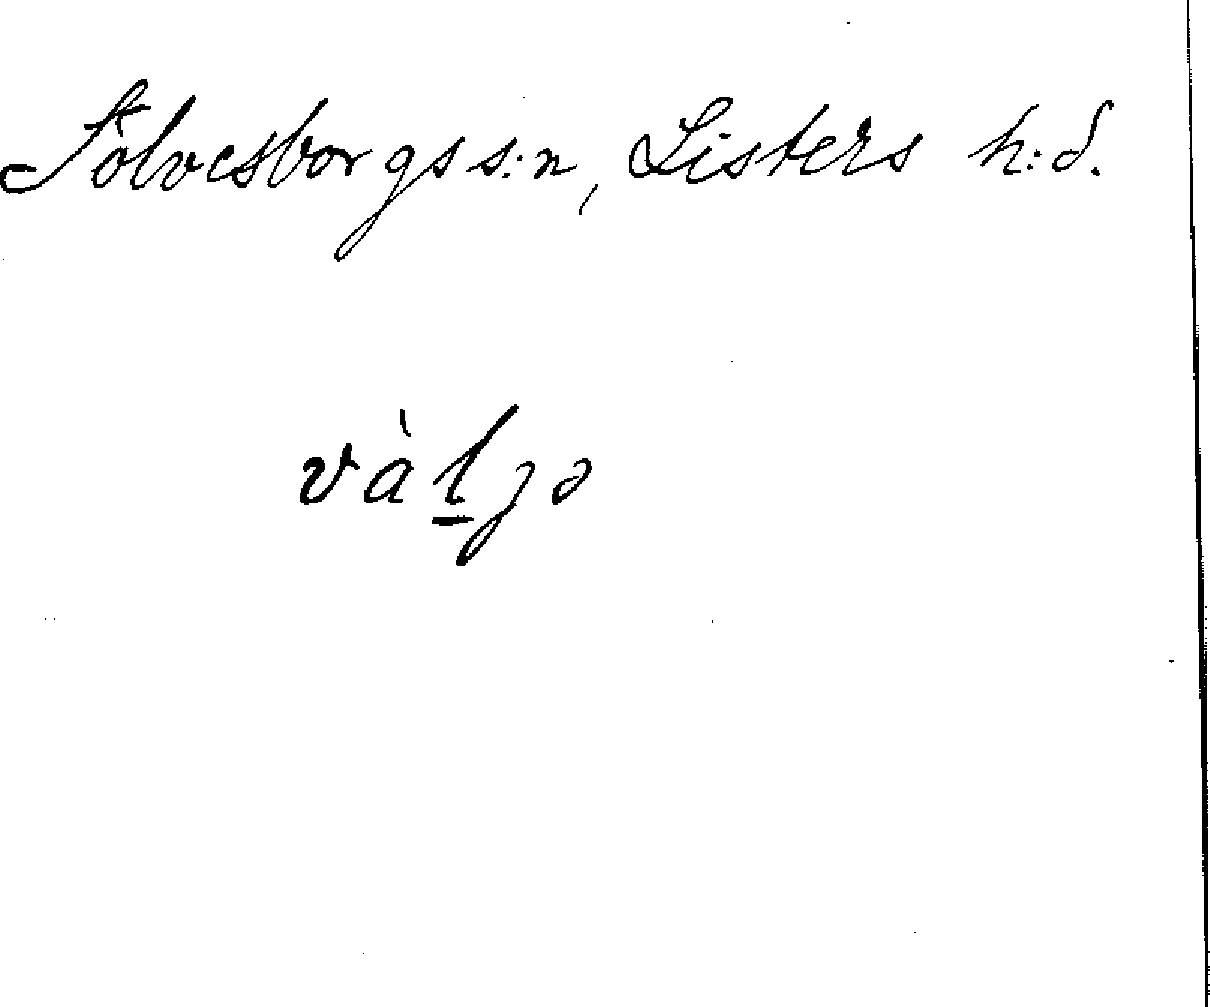 Sölvesborgs s:n, Listers h:d.
vàl̲jə